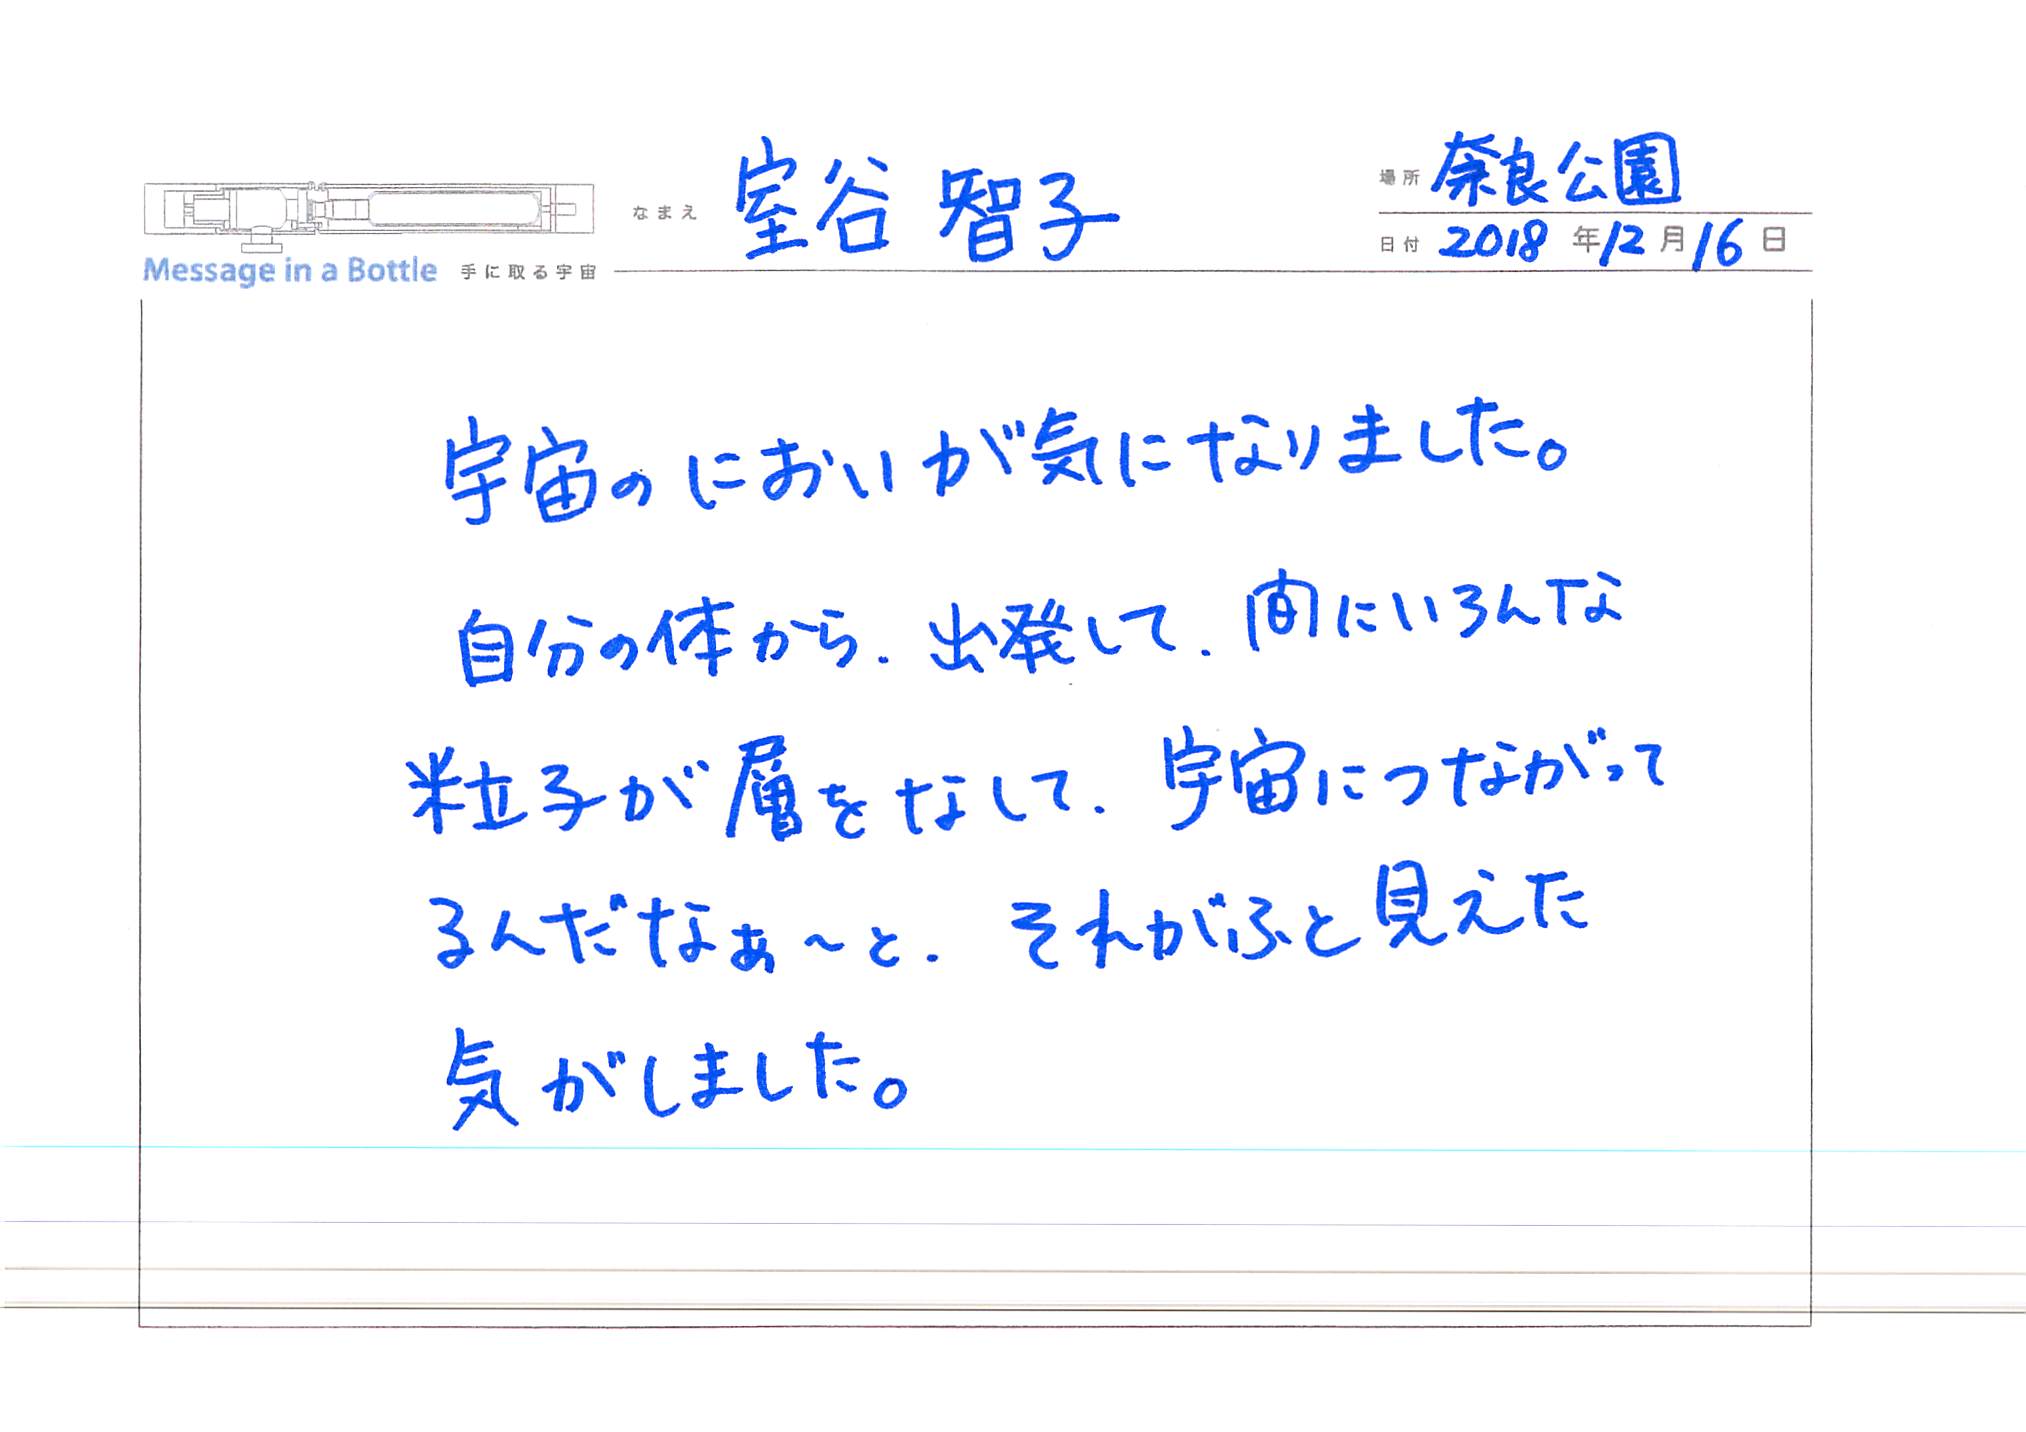 なまえ 室谷 智子
場所 奈良公園
日付 2018年12月16日
Message in a Bottle 手に取る宇宙
宇宙のにおいが気になりました。
自分の体から.出発して.間にいろんな
粒子が層をなして.宇宙につながって
るんだなぁ～と.それがふと見えた
気がしました。